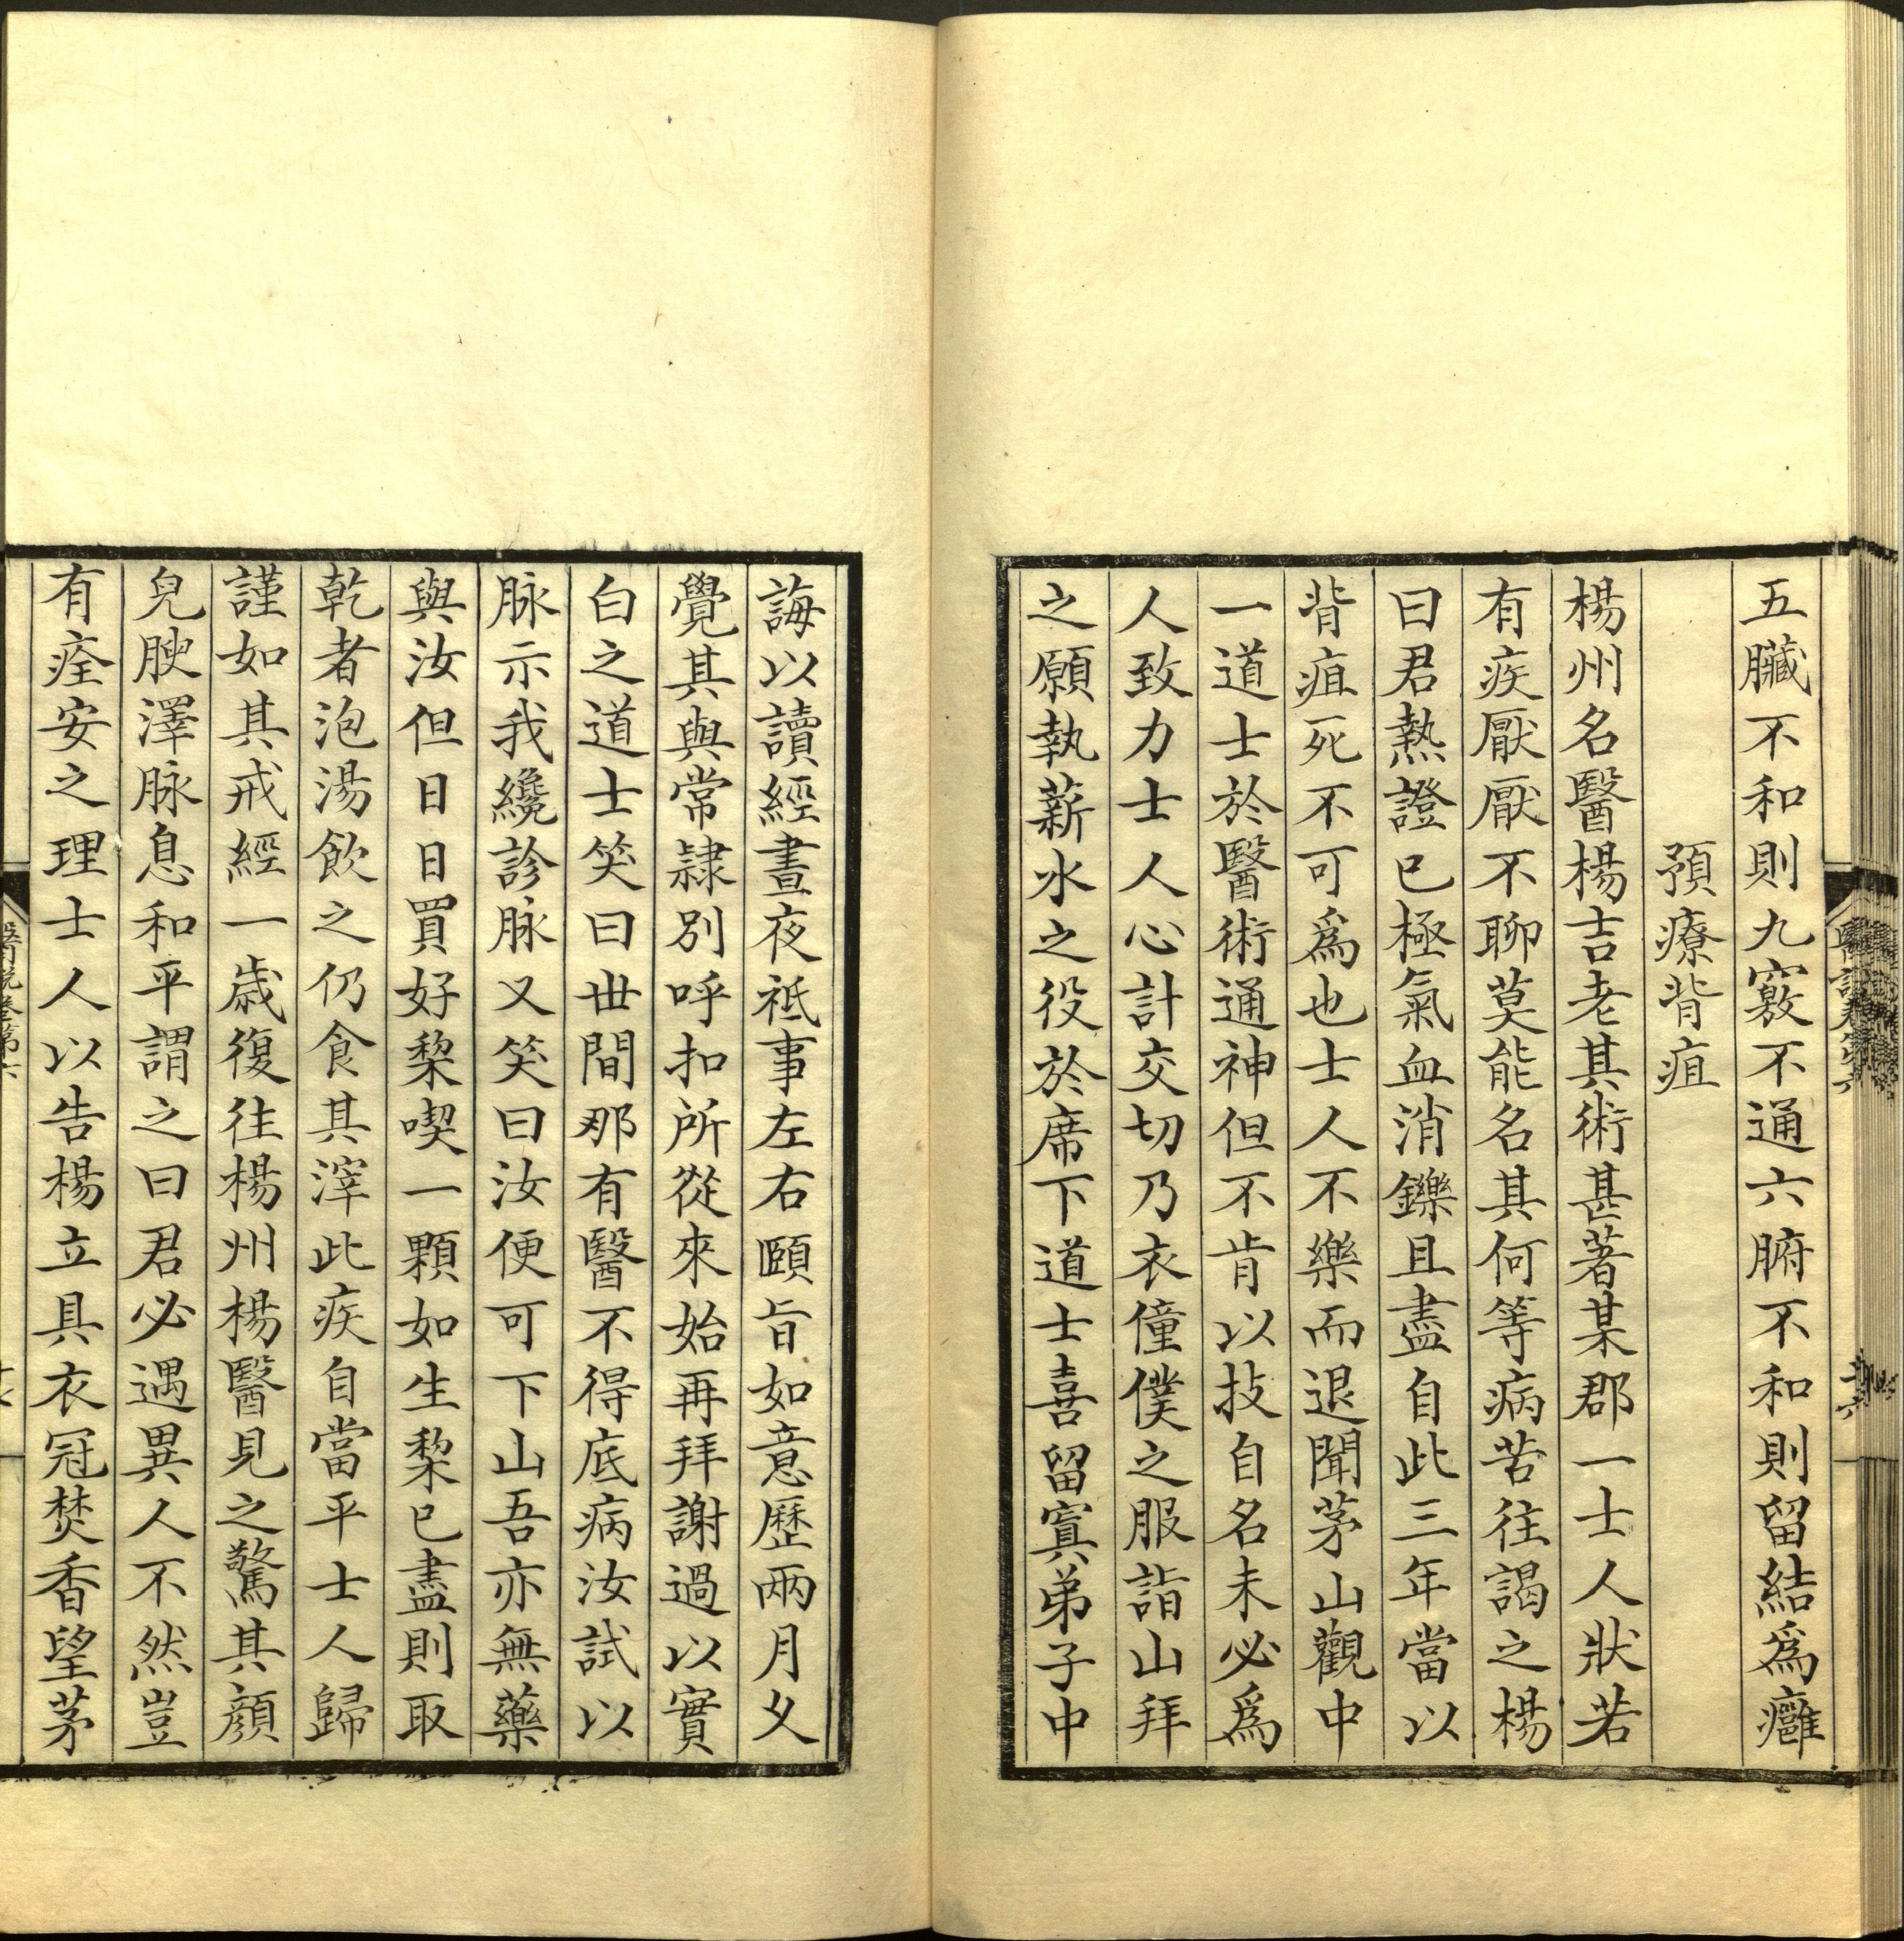 五臟不和則九竅不通六腑不和則留結爲癰
預療背疽
楊州名醫楊吉老其術甚著某郡一士人狀若
有疾厭厭不聊莫能名其何等病苦往謁之楊
曰君熱證已極氣血消鑠且盡自此三年當以
背疽死不可爲也士人不樂而退聞茅山觀中
一道士於醫術通神但不肯以技自名未必爲
人致力士人心計交切乃衣僮僕之服詣山拜
之願執薪水之役於席下道士喜留寘弟子中
誨以讀經晝夜祗事左右頤旨如意歷兩月久
覺其與常隸別呼扣所從來始再拜謝過以實
白之道士笑曰世間那有醫不得底病汝試以
脉示我纔診脉又笑曰汝便可下山吾亦無藥
與汝但日日買好梨喫一顆如生梨已盡則取
乾者泡湯飲之仍食其滓此疾自當平士人歸
謹如其戒經一歲復往楊州楊醫見之驚其顏
皃腴澤脉息和平謂之曰君必遇異人不然豈
有痊安之理士人以告楊立具衣冠焚香望茅
醫說卷第六